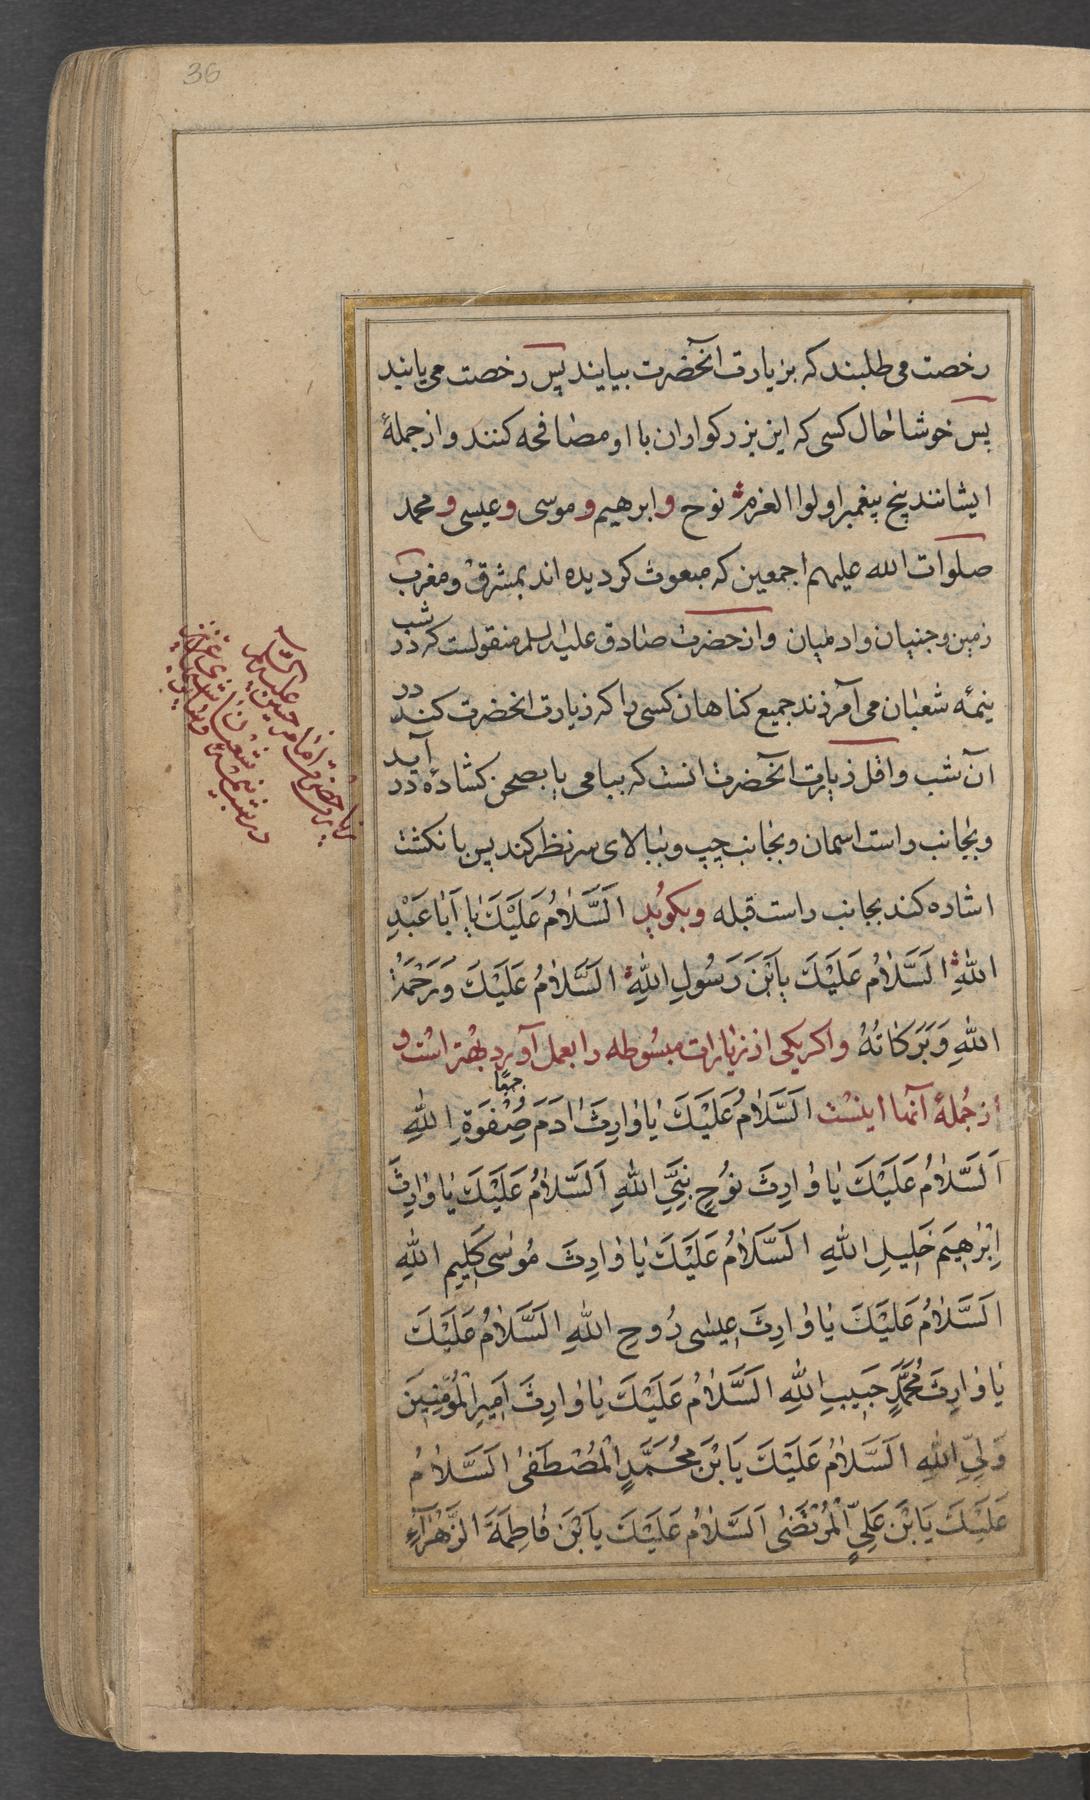 36
رخصت می طلبند که بزیارت آنحضرت بیایند پس رخصت می یابند
پس خوشا حال کسی که این بزرکواران با او مصافحه کنند و از جملهٔ
ایشانند پنج پیغمبر اولوا العزم نوح و ابرهیم و موسی و عیسی و محمد
صلوات الله علیهم اجمعین که مبعوث کردیده اند بمشرق و مغرب
زمین و جنیان و ادمیان و از حضرت صادق علیه السلم منقولست که در شب
نیمهٔ شعبان می آمرزند جمیع کناهان کسی را که زیارت انحضرت کند در
آن شب و اقل زیارت آنحضرت انست که ببامی یا بصحن کشادهٔ در آید
و بجانب راست اسمان و بجانب چپ و ببالای سر نظر کند پس بانکشت
اشاره کند بجانب راست قبله و بکوید اَلسَّلامُ عَلَیْكَ یا اَباعَبْدِ
اللهِ اَلسَّلامُ عَلَیْكَ یابْنَ رَسُولِ اللهِ اَلسَّلامُ عَلَیْكَ وَ رَحْمَةُ
اللهِ وَ بَرَکاتُهُ و اکر یکی از زیارات مبسوطه را بعمل آورد بهتر است و
از جُملهٔ آنها اینست اَلسَّلامُ عَلَیْكَ یا وارِثَ ادَمَ صِفْوَةِ اللهِ
اَلسَّلامُ عَلَیْكَ یا وارِثَ نوُحٍ نَبِیِّ اللهِ اَلسَّلامُ عَلَیْكَ یا وارِثَ
اِبْرهیمَ خَلیلِ اللهِ اَلسَّلامُ عَلَیْكَ یا وارِثَ مُوسی کَلیمِ اللهِ
اَلسَّلامُ عَلَیْكَ یا وارِثَ عیسی رُوحِ اللهِ اَلسَّلامُ عَلَیْكَ
یا وارِثَ مُحَمَّدٍ حَبیبِ اللهِ اَلسَّلامُ عَلَیْكَ یا وارِثَ اَمیرِ الْمُؤْمِنینَ
وَلِیِّ اللهِ اَلسَّلامُ عَلَیْكَ یَابْنَ مُحَمَّدٍ الْمُصْطَفی اَلسَّلامُ
عَلَیْكَ یَابْنَ عَلِیٍّ الْمُرْتَضی اَلسَّلامُ عَلَیْكَ یاَبْنَ فاطِمَةَ الزَّهْرآءِ